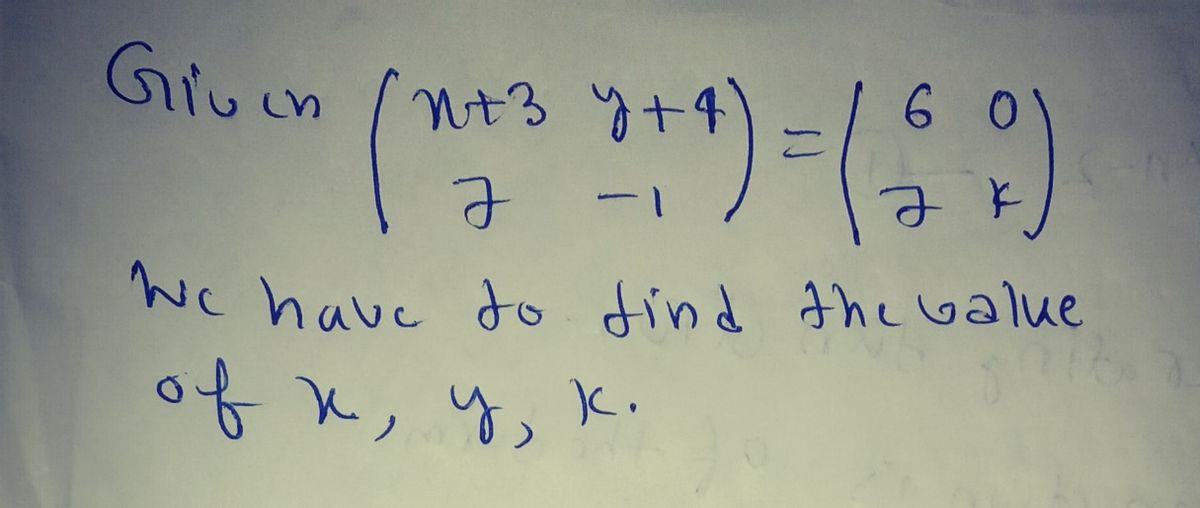 Given (x+3 y+4) = (6 0)
(7 -1) (7 k)
We have to find the value
of x, y, k.